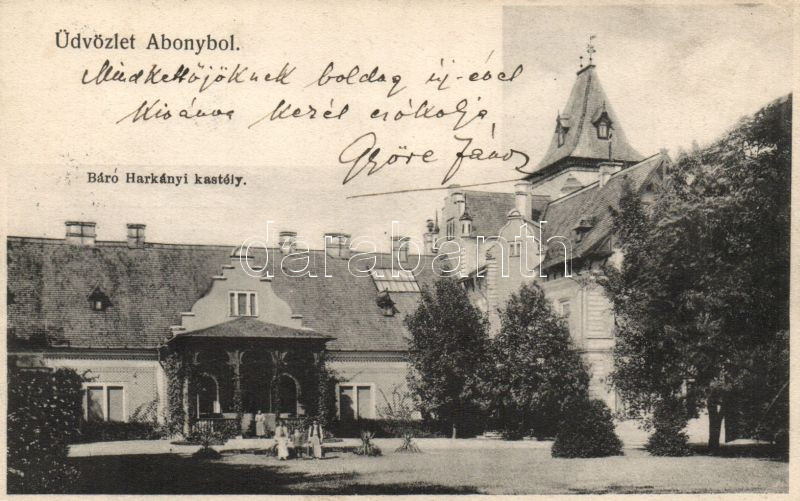 Üdvözlet Abonyból.
Mindkettőjöknek boldog új-évet
Kivánva kezét csókolja
Györe János
Báró Harkányi kastély.
darabanth